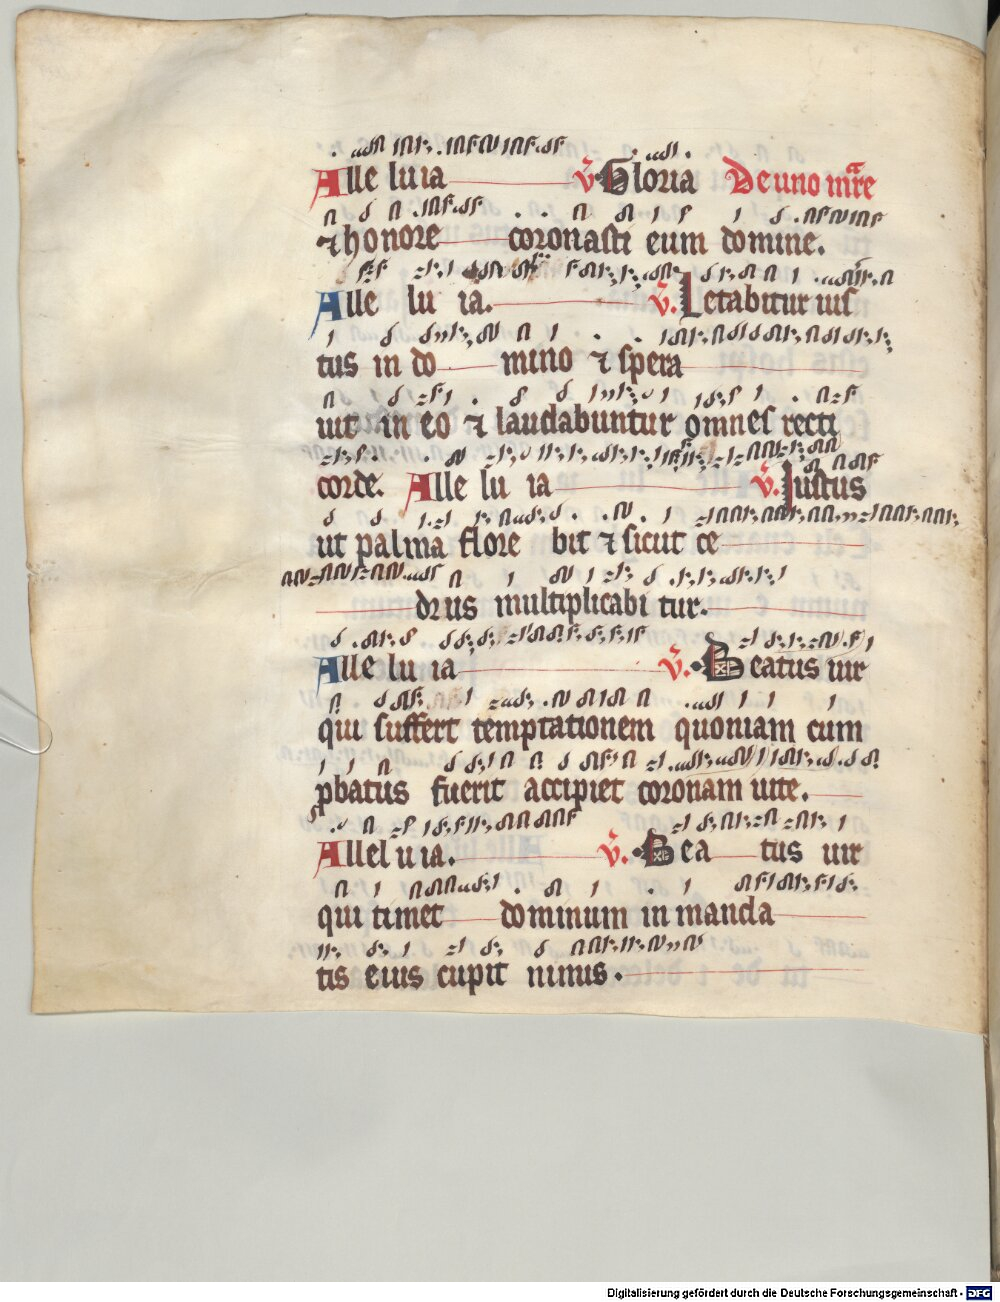 Alle luia v̄ Gloria De uno mr̄e
⁊ honore coronasti eum domine.
Alle lu ia. v̄. Letabitur ius
tus in do mino ⁊ spera
uit in eo ⁊ laudabuntur omnes recti
corde. Alle lu ia v̄. Justus
ut palma flore bit ⁊ sicut ce
drus multiplicabi tur.
Alle lu ia v̄. Beatus uir
qui suffert temptationem quoniam cum
pbatus fuerit accipiet coronam uite.
Allel u ia. v̄. Bea tus uir
qui timet dominum in manda
tis eius cupit nimis.
Digitalisierung gefördert durch die Deutsche Forschungsgemeinschaft - DFG